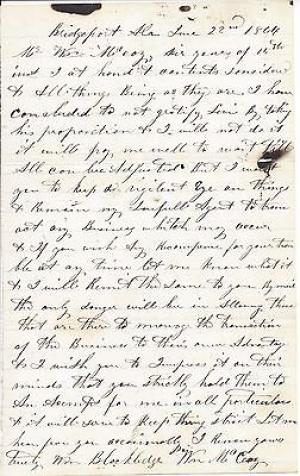 Bridgeport Ala June 22nd 1864
Mr Wm McCoy, Sir yours of 12th
inst is at hand & contents considered
& All things Being as they are I have
concluded to not gratify Levi By taking
his proposition & I will not do it
it will pay me well to wait till
All can be But I want
you to keep a vigilent Eye on things
& Remain my Lawfull Agent to trans
act any Business whitch may occur
& If you wish Any Recompense for your trou
ble at any time let me Know what it
& I will Remit the Same to you By mail
the only danger will be in Allowing those
that are there to manage the transition
of the Business to their own Advantage
& I wish you to Impress it on their
minds that you strictly hold them to
An Account for me in all perticulars
& it will serve to Keep things strict Let me
hear from you occasionally I Remain yours
Truly Wm Blackledge Wm McCoy